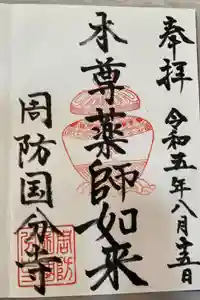 奉拝
令和五年八月十五日
本尊薬師如来
周防国分寺